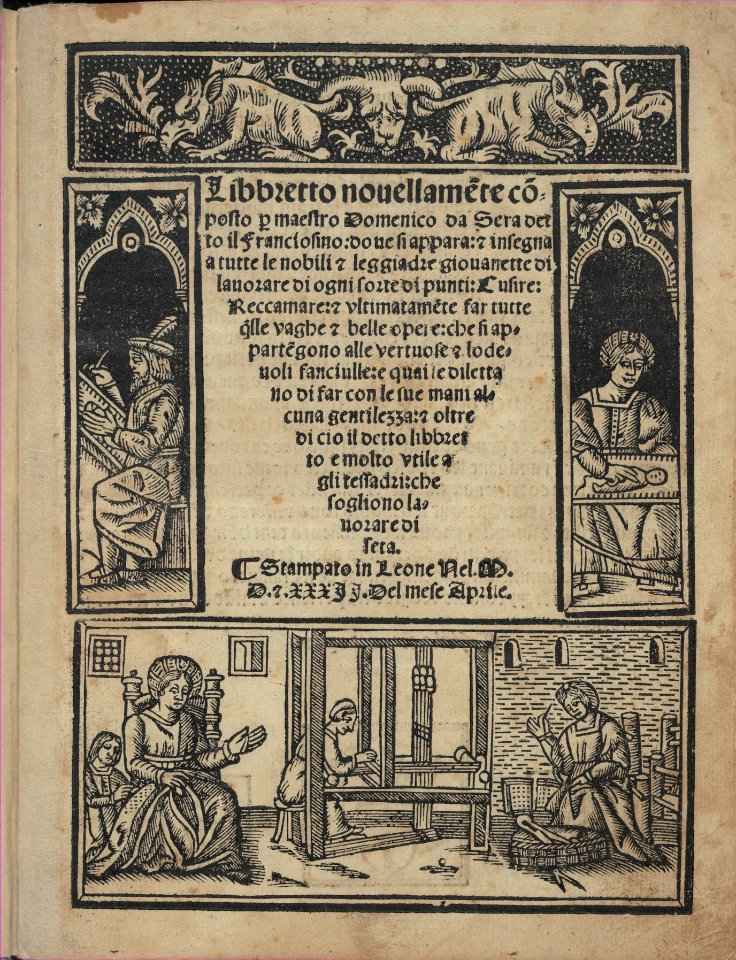 Libbretto nouellamẽte cõ-
posto ꝑ maestro Domenico da Sera det
to il Franciosino:doue si appara:⁊ insegna
a tutte le nobili ⁊ leggiadre giouanette di
lauorare di ogni sorte di punti:Cusire:
Reccamare:⁊ vltimatamẽte far tutte
q̃lle vaghe ⁊ belle opere:che si ap-
partẽgono alle vertuose ⁊ lode-
uoli fanciulle:e quai se diletta
no di far con le sue mani al-
cuna gentilezza:⁊ oltre
di cio il detto libbret
to e molto vtile a
gli tessadri:che
sogliono la-
uorare di
seta.
¶ Stampato in Leone Nel.M.
D.⁊.XXXII.Del mese Aprile.